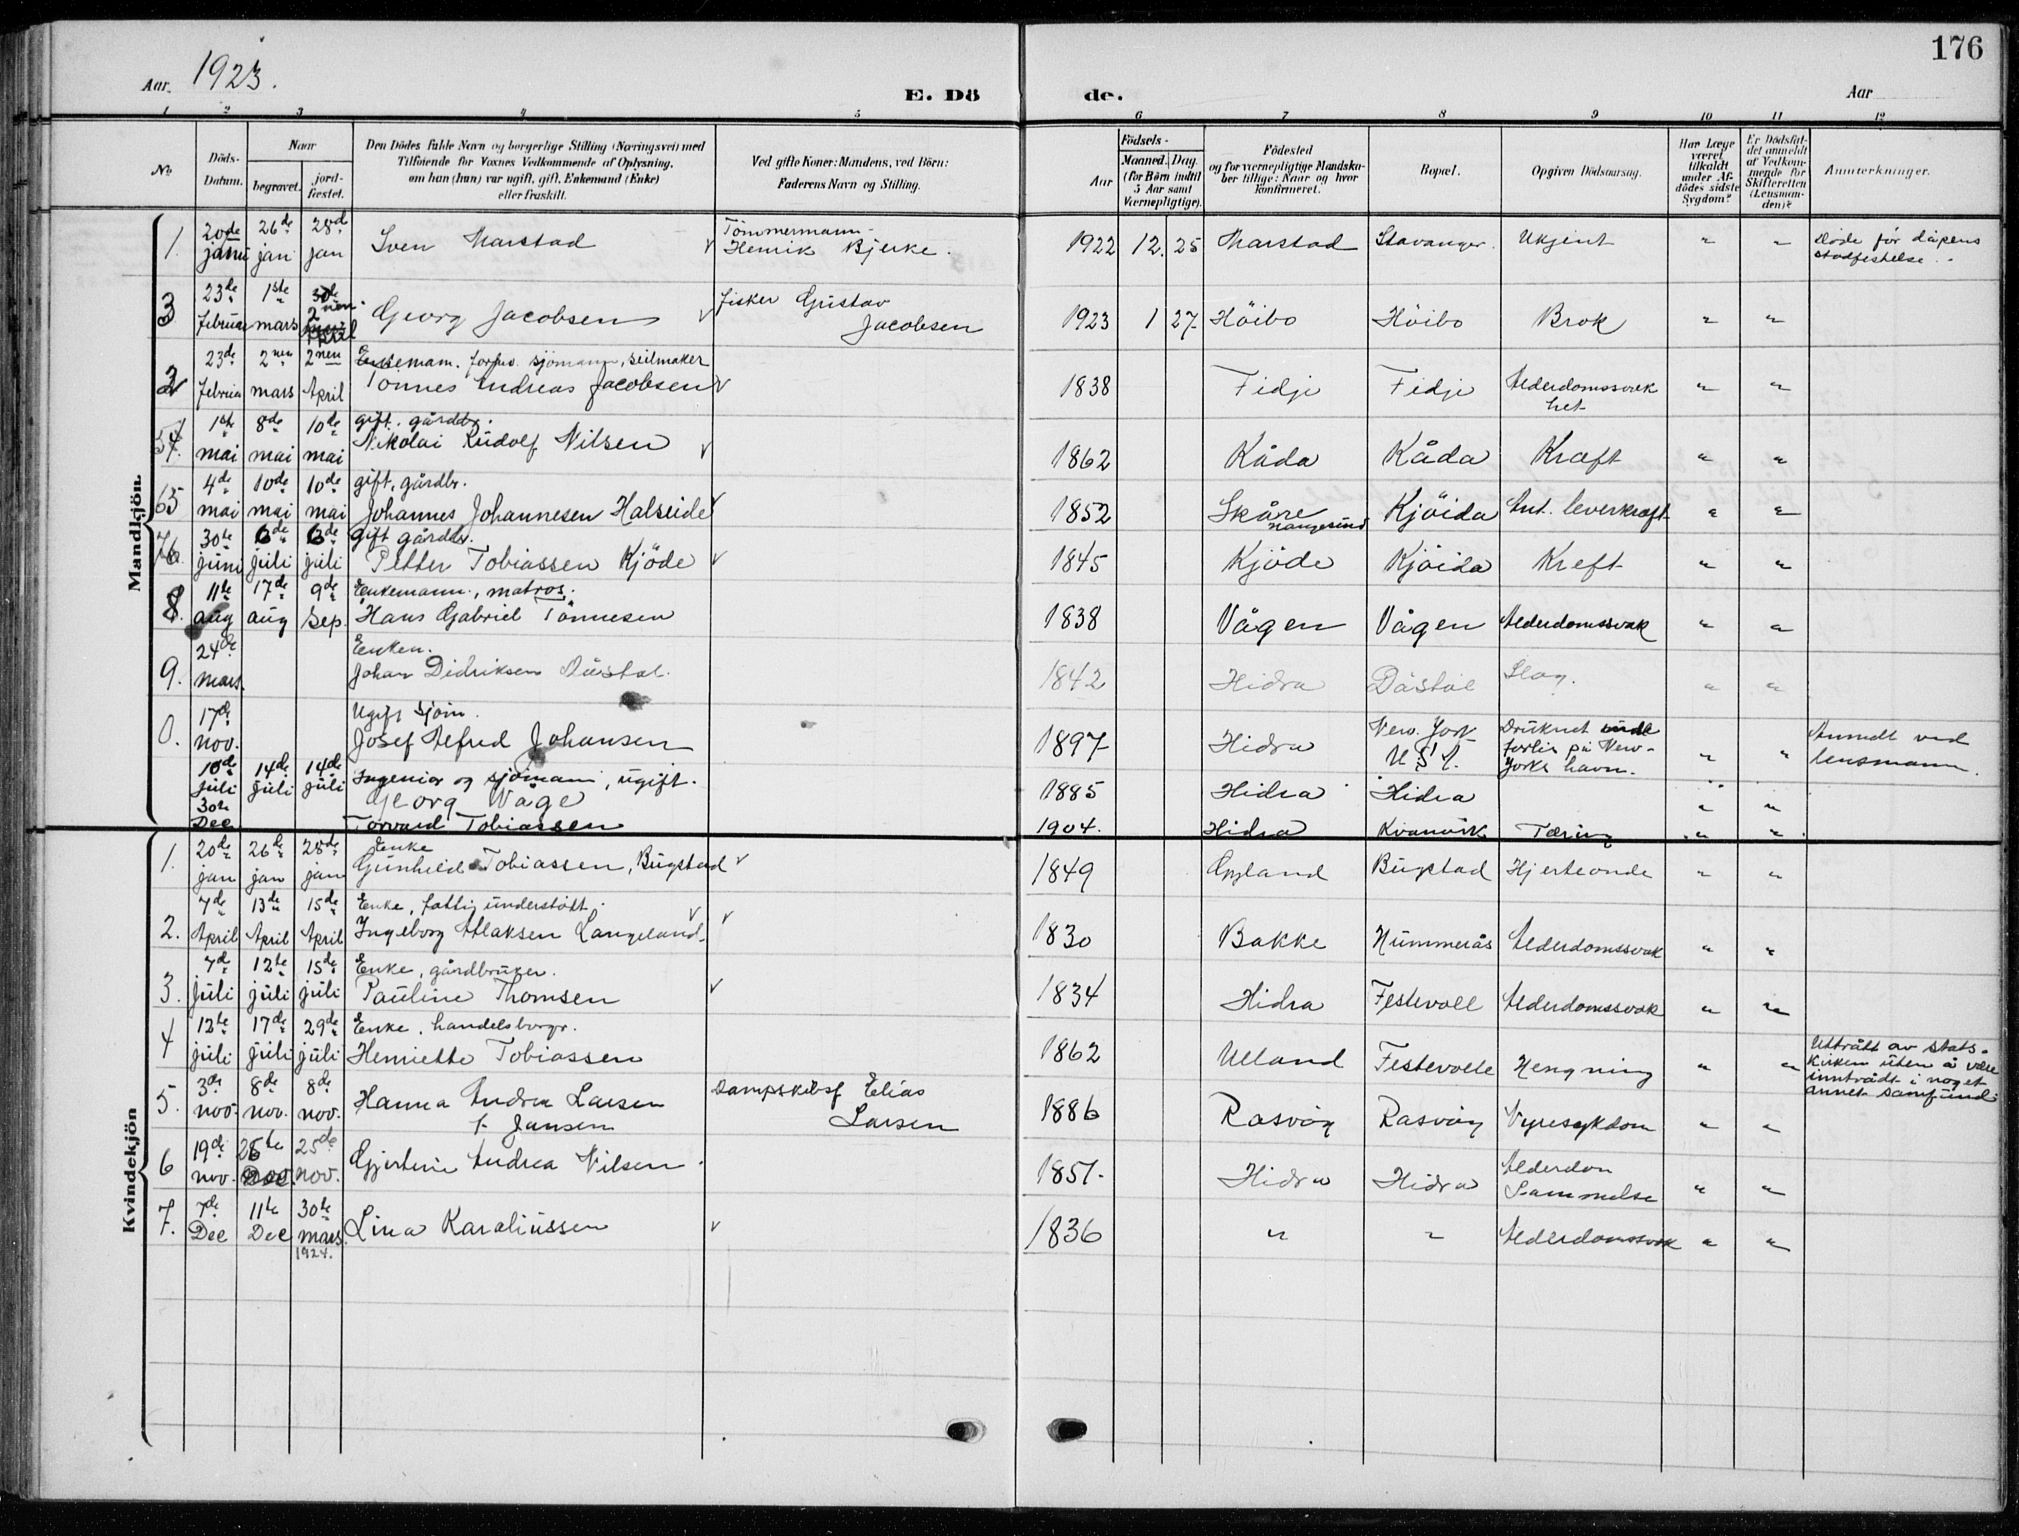 176
Aar 1923.
E. Döde.
Aar
1 2 3 4 5 6 7 8 9 10 11 12
No.
Döds-Datum.
Naar
begravet.
jord-fæstet.
Den Dödes fulde Navn og borgerlige Stilling (Næringsvei) med
Tilföiende for Voxnes Vedkommende af Oplysning,
om han (hun) var ugift, gift, Enkemand (Enke)
eller fraskilt.
Ved gifte Koner: Mandens, ved Börn:
Faderens Navn og Stilling.
Födsels-
Aar
Maaned. Dag
(for Börn indtil
5 Aar samt
Værnepligtige).
Födested
og for værnepligtige Mandska-
ber tillige: Naar og hvor
konfirmeret.
Bopæl.
Opgiven Dödsaarsag.
Har Læge
været
tilkaldt
under Af-
dödes sidste
Sygdom?
Er Dödsfal-
det anmeldt
af Vedkom-
mende for
Skifteretten
(Lensman-
den)?
Anmerkninger.
Mandkjön.
1. 20de janu 26de jan 28de jan Sven Marstad Tömmermann Henrik Bjerke. 1922 12. 25 Marstad Stavanger. Ukjent " " Döde för dåpens stadfestelse.
3 23de februar 1ste mars 2nen april Georg Jacobsen fisker Gustav Jacobsen 1923 1 27. Höibo Höibo Brok " "
2 23de februar 2nen mars 2nen April Enkemann. forhv. sjömann, seilmaker
Tönnes Andreas Jacobsen 1838 Fidje Fidje Alderdomssvekhet " "
4. 1ste mai 8de mai 10de mai gift. gårdbr.
Nikolai Rudolf Nilsen 1862 Kåda Kåda Kræft " "
5 4de mai 10de mai 10de mai gift, gårdbr.
Johannes Johannesen Halseide 1852 Skåre Kjöida Ant. leverkræft " "
6. 30te juni 6de juli 6de juli gift gårdbr.
Petter Tobiassen Kjöde 1845 Kjöde Kjöida Kreft " "
8. 11te aug 17de aug 9de Sep. Enkemann, matros.
Hans Gabriel Tönnesen 1838 Vågen Vågen Alderdomssvak " "
9. 24de mars. Enkem.
Johan Didriksen Dåstöl. 1842 Hidra Dåstöl Slag. " "
0. 17de nov. Ugift sjöm.
Josef Alfred Johansen 1897 Hidra New. York U. S. A. Druknet forlis på New-Yorks havn. " " Anmeldt ved lensmann.
10de juli 14de juli 14de juli Ingeniör og sjömann, ugift.
Georg Våge 1885 Hidra Hidra " "
30te Dec Torvard Tobiassen 1904. Hidra Kvanvik Tæring " "
Kvindekjön
1. 20de jan 26de jan 28de jan Enke
Gunhild Tobiassen, Bugstad 1849 Opland Bugstad Hjerteonde " "
2. 7de April 13de April 15de April Enke, fattigunderstött.
Ingeborg Aslaksen Langeland. 1830 Bakke Hummerås Alderdomssvak " "
3. 7de juli 12te juli 15de juli Enke, gårdbruker.
Pauline Thomsen 1834 Hidra Festevoll Alderdomssvak " "
4 12te juli 17de juli 29de juli Enke, handelsborgr.
Henriette Tobiassen 1862 Ueland Festevolle Hengning " " Uttrått av stats-
kirken uten å være
inntrådt i noget
annet samfund.
5. 3de nov. 8de nov. 8de nov. Hanna Andrea Larsen
f. Jansen Dampskibsf Elias Larsen 1886 Rasvåg Rasvåg Nyresykdom " "
6 19de nov. 25te 25de nov. Gjertine Andrea Nilsen. 1851. Hidra Hidra Alderdom " "
7. 7de Dec 11te Dec 30te mars 1924. Lina Karaliussen 1836 " " Alderdomssvak " "